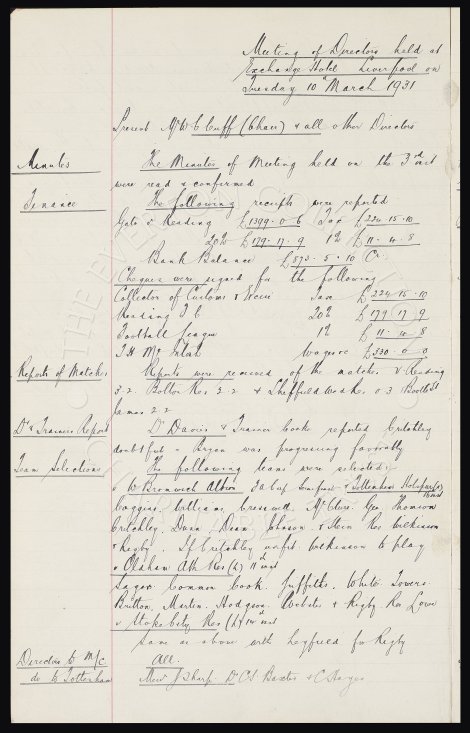 Meeting of Directors held at
Exchange Hotel Liverpool on
Tuesday 10th March 1931
Present Mr W. C. Cuff (Chair) & all other Directors
Minutes
The Minutes of Meeting held on the 3rd inst
were read & confirmed
Finance
The following receipts were reported
Gate v Reading £1399.0.6 Tax £224.15.10
20% £179.17.9 1% £11.4.8
Bank Balance Cr
Cheques were signed for the following
Collector of Customs & Excise Tax £224.15.10
Reading F.C. 20% £179.17.9
Football League 1% £11.4.8
T H McIntosh Wages £330.0.0
Reports of Matches
Reports were received of the matches v Reading
3.2 Bolton Res 2.2 & Sheffield Wed Res. 0.3 Bootle St
James 2.2
Dr & Trainers Report
Dr Davies & Trainer Cooke reported Critchley
doubtful - was progressing favorably
Team Selections
The following teams were selected:-
v W. Bromwich Albion & Tottenham Hotspur (a)
Coggins Williams Cresswell McClure Gee Thomson
Critchley Dunn Dean Johnson & Stein Res Wilkinson
& Rigby. If Critchley unfit Wilkinson to play
v Oldham Ath Res (h) 11th inst
Sagar Common Cook Griffiths White Towers
Britton Martin Hodgson Webster & Rigby Res Lowe
v Stoke City Res (h) inst
Same as above with for Rigby
Directors to M/c
All.
do to Tottenham
Messrs J Sharp Dr C.S. Baxter & C. Sayer
THE EVERTON COLLECTION